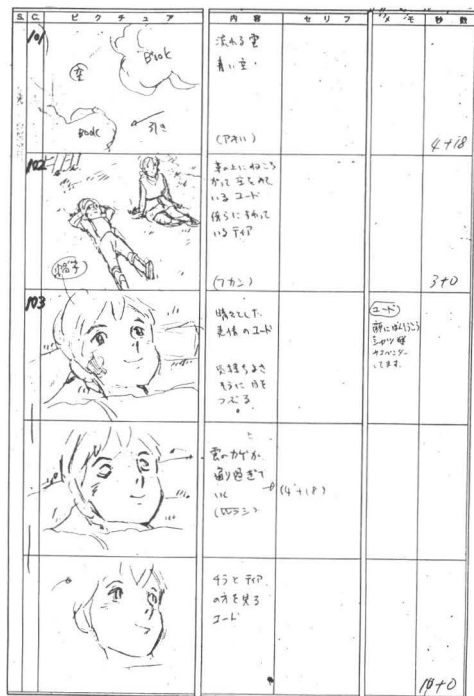 S. C. ピクチュア 内容 セリフ メモ 秒数
101
Book
空
Book
引き
流れる雲
青い空.
(アオリ)
4+18
102
草の上にねころ
がって空をみて
いる コード
傍らにすわって
いる ティア
(フカン)
3+0
103
帽子
晴々とした
表情のコード
気持ちよさ
そうに目を
つぶる
コード
シャツ
してます.
雲のカゲが
通り過ぎて
いく
(4+18)
チラとティア
の方を見る
コード
18+0